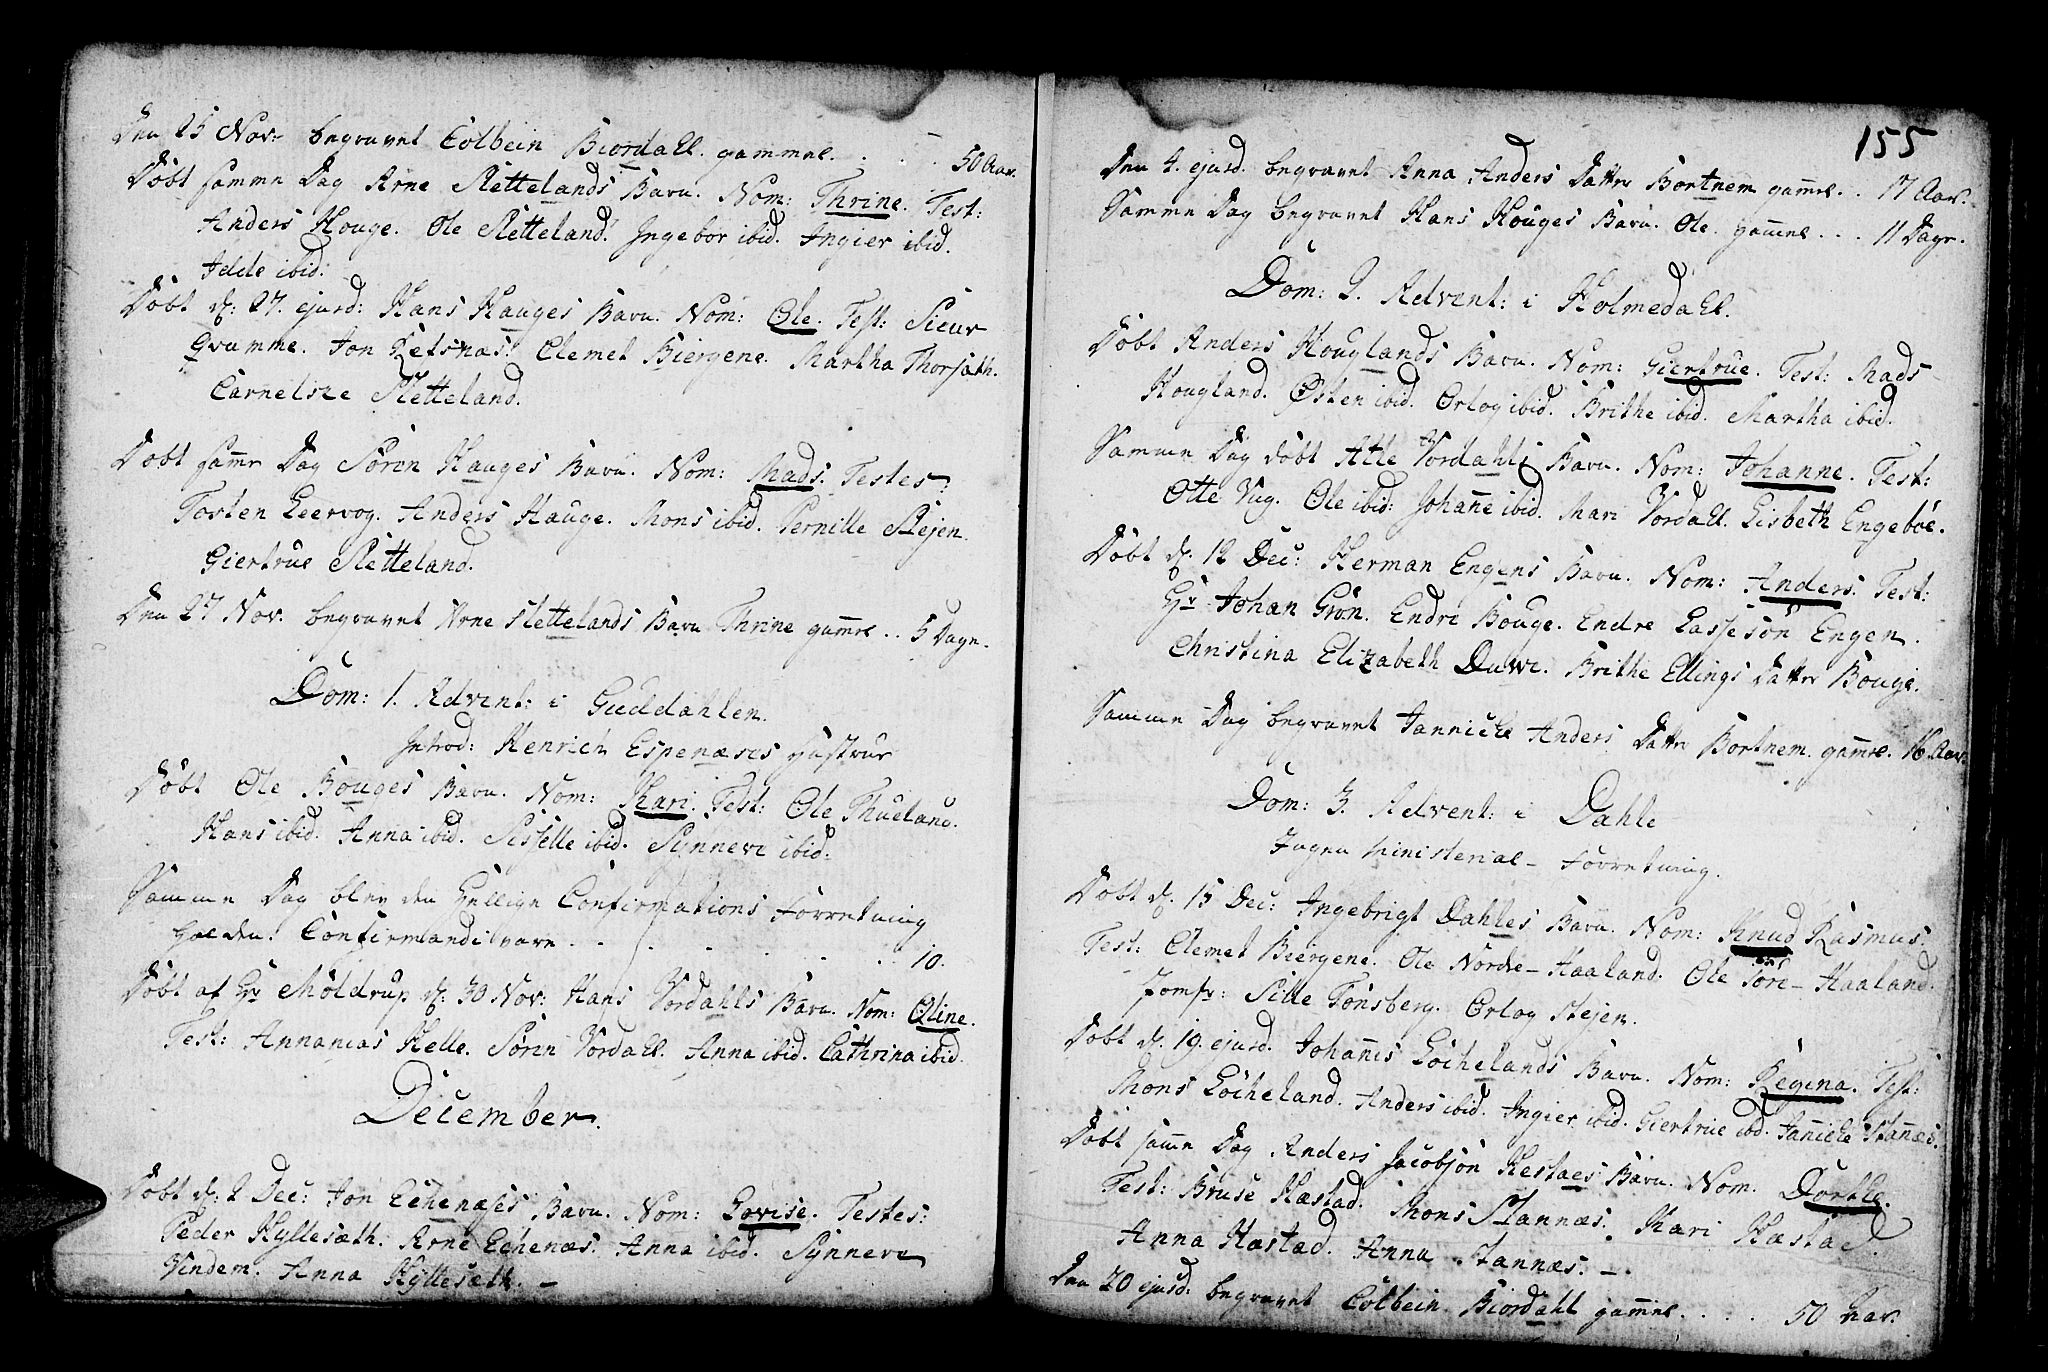 Den 25 Nov: begravet Colbein Biordahl. gammel. . . . 50 Aar.
Döbt samme Dag Arne Slettelands Barn. Nom: Thrine. Test:
Anders Houge. Ole Sletteland. Ingebor ibid. Ingier ibid.
Idde ibid.
Döbt d. 27. ejusd: Hans Hauges Barn. Nom: Ole. Test: Sieur
Qvamme. Jon Letsnæs. Clemet Biergene. Martha Thorsæth.
Carnelsze Sletteland.
Döbt samme Dag Sörin Hauges Barn. Nom: Mads. Testes:
Tosten Leervog. Anders Hauge. Mons ibid. Pernille Stejen.
Giertrue Sletteland.
Den 27 Nov. begravet Arne Slettelands Barn Thrine gamel. . 5 Dage.
Dom: 1. Advent: i Guddahlen.
Introd: Henrich Espenæses Hustrue
Döbt Ole Bouges Barn. Nom: Kari. Test: Ole Thueland.
Hans ibid. Anna ibid. Sisselle ibid. Synneve ibid:
Samme Dag blev den Hellige Confirmations Forretning
holden. Confirmandi vare . . . . . . . . 10.
Döbt af Hr Möldrup d. 30 Nov: Hans Vordahls Barn. Nom: Oline.
Test: Annanias Helle. Sörin Vordahl. Anna ibid. Cathrina ibid.
December.
Döbt d. 2 Dec: Jon Echenæses Barn. Nom: Lovise. Testes:
Peder Hyllesæth. Arne Echenæs. Anna ibid. Synneve
Vindem. Anna Hyllesæth. -
155
Den 4. ejusd. begravet Anna Anders Datter Bortnem gamel. . 17 Aar.
Samme Dag begravet Hans Houges Barn. Ole. gamel . . . 11 Dage.
Dom: 2. Advent: i Holmedahl.
Döbt Anders Houglands Barn. Nom: Giertrue. Test: Mads
Hougland. Østen ibid. Orlog ibid. Brithe ibid. Martha ibid.
Samme Dag döbt Atle Vordahls Barn. Nom: Johanne. Test:
Otte Vug. Ole ibid: Johanne ibid. Mari Vordahl. Lisbeth Engeböe.
Döbt d. 12 Dec: Herman Engens Barn. Nom: Anders. Test:
Hr Johan Grön. Endre Bouge. Endre Lassesön Engen.
Christina Elizabeth Duwe. Brithe Ellings Datter Bouge.
Samme Dag begravet Jannicke Anders Datter Bortnem. gamel. 16 Aar
Dom: 3. Advent: i Dahle
Ingen Ministerial- Forretning.
Döbt d. 15 Dec: Ingebrigt Dahles Barn. Nom: Knud Rasmus:
Test: Clemet Biergene. Ole Nordre-Haaland. Ole Söre-Haaland.
Jomfr: Sille Tönsberg. Orlog Stejen.
Döbt d. 19. ejusd. Johannes Löchelands Barn. Nom: Regina. Test:
Mons Löcheland. Anders ibid. Ingier ibid. Giertrue ibid. Jannicke Stannæs.
Döbt samme Dag Anders Jacobsön Hestaes Barn. Nom. Dorthe.
Test: Bruse Hæstad. Mons Stannæs. Kari Hæstad.
Anna Hæstad. Anna Stannæs. -
Den 20 ejusd: begravet Colbein Biordahl gamel. . . . 50 Aar.